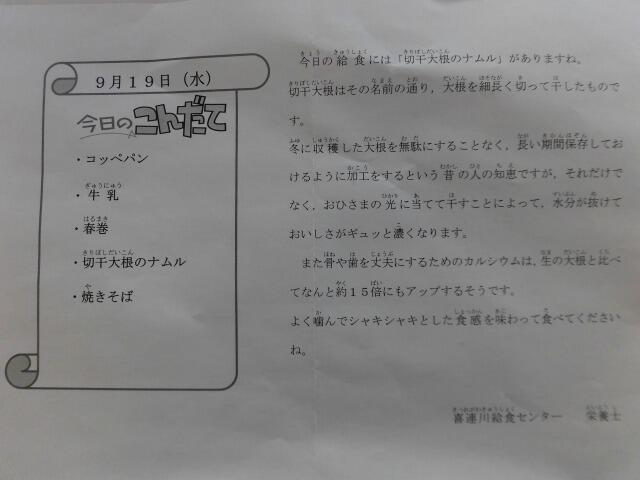 9月19日（水）
今日のこんだて
・コッペパン
・牛乳
・春巻
・切干大根のナムル
・焼きそば
今日の給食には「切干大根のナムル」がありますね。
切干大根はその名前の通り，大根を細長く切って干したもので
す。
冬に収穫した大根を無駄にすることなく，長い期間保存してお
けるように加工をするという昔の人の知恵ですが，それだけで
なく，おひさまの光に当てて干すことによって，水分が抜けて
おいしさがギュッと濃くなります。
また骨や歯を丈夫にするためのカルシウムは，生の大根と比べ
てなんと約15倍にもアップするそうです。
よく噛んでシャキシャキとした食感を味わって食べてください
ね。
喜連川給食センター　栄養士